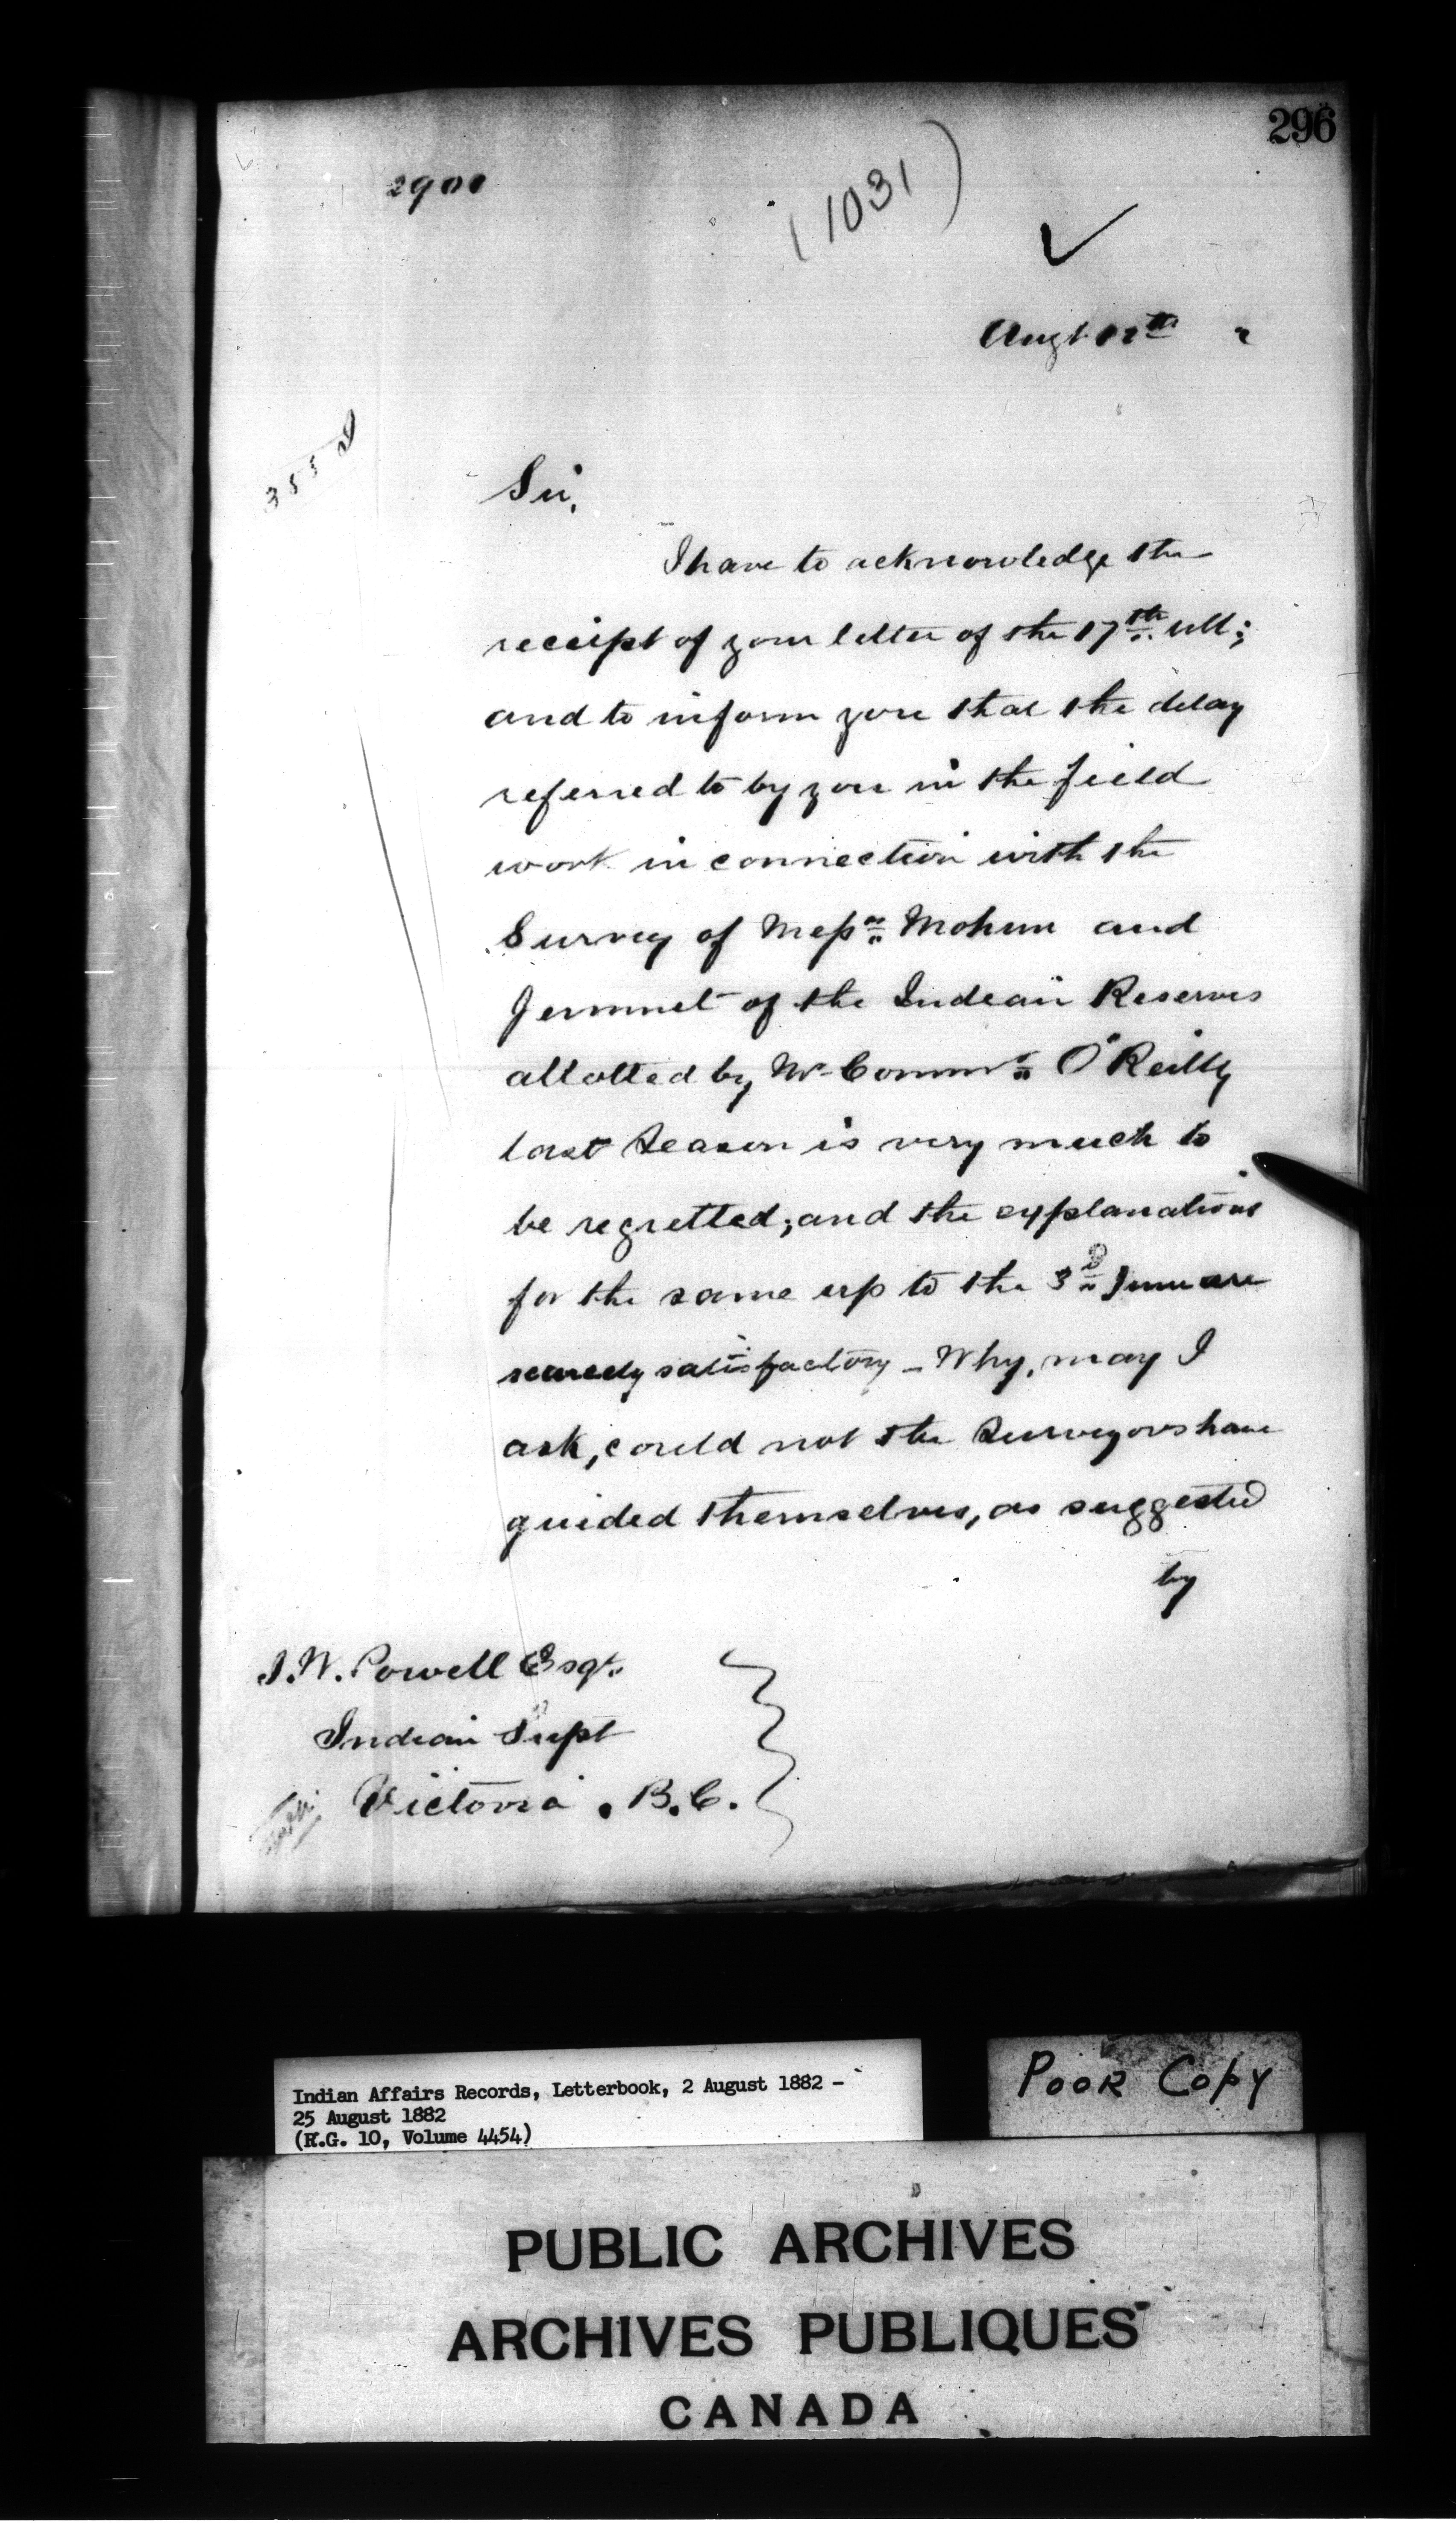 296
2900
(1031)
Augt 12th 2
Sir,
I have to acknowledge the
receipt of your letter of the 17th ult;
and to inform you that the delay
referred to by you in the field
work in connection with the
Survey of Messrs Mohun and
Jemmet of the Indian Reserves
allotted by Mr Commr O'Reilly
last Season is very much to
be regretted; and the explanations
for the same up to the 3rd June are
scarcely satisfactory - Why, may I
ask, could not the Surveyors have
guided themselves, as suggested
by
I.W. Powell Esqr.
Indian Supt
Victoria. B.C.
Indian Affairs Records, Letterbook, 2 August 1882 -
25 August 1882
(R.G. 10, Volume 4454)
POOR COPY
PUBLIC ARCHIVES
ARCHIVES PUBLIQUES
CANADA